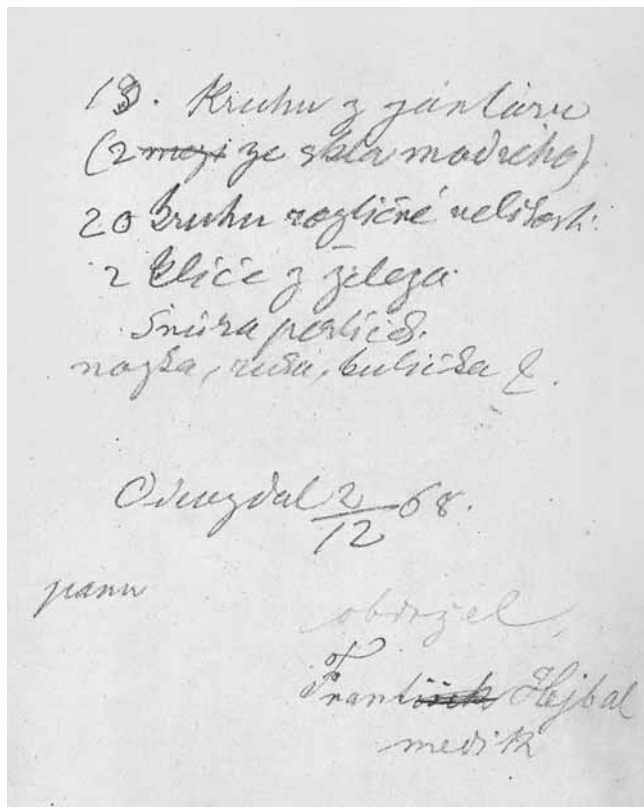 19. Kruhu z jantaru
(2 mezi ze skla modrého)
20 kruhu rozličné velikosti.
2 klíče z železa
Šnůra perliček.
nozka, ruka, kulička &.
Odevzdal 2/12 68.
panu
obdržel
František Hejbal
medik